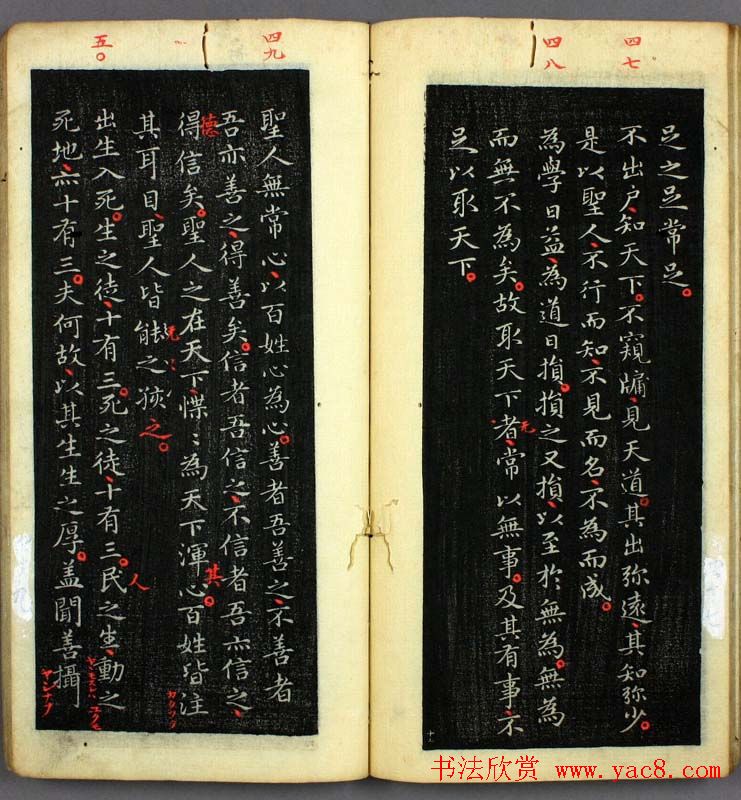 四七
四八
足之足常足
不出户知天下不窺牖見天道其出弥遠其知弥少
是以聖人不行而知不見而名不為而成
為學日益為道日損損之又損以至於無為無為
而無不為矣故取天下者常以無事及其有事不
足以取天下
四九
五〇
聖人無常心以百姓心為心善者吾善之不善者
吾亦善之得善矣信者吾信之不信者吾亦信之
得信矣聖人之在天下惵〻為天下渾心百姓皆注
其耳目聖人皆
出生入死生之徒十有三死之徒十有三民之生動之
死地亦十有三夫何故以其生生之厚盖聞善攝
德
其
之
人
书法欣赏 www.yac8.com